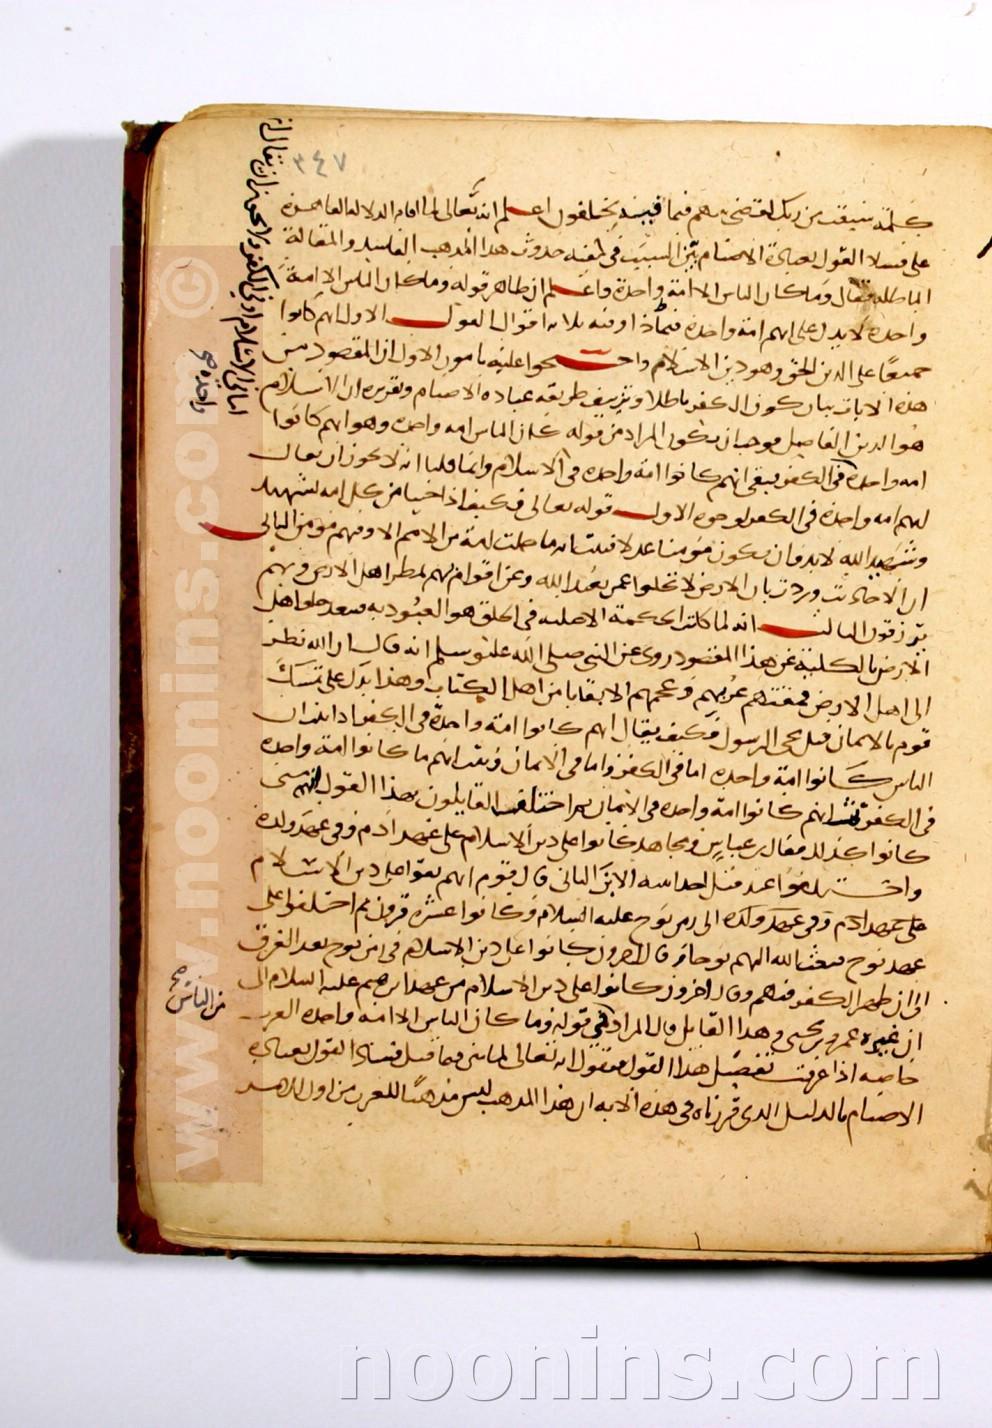 ٣٤٧
كلمة سبقت من ربك لقضي بينهم فيما فيه يختلفون اعلم انه تعالى لما اقام الدلالة القاهرة
على فساد القول بعبادة الاصنام بين السبب في كيفية حدوث هذا المذهب الفاسد والمقالة
الباطلة فقال وما كان الناس الا امة واحدة واعلم ان ظاهر قوله وما كان الناس الا امة
واحدة لا يدل على انهم امة واحدة فيماذا وفيه ثلاثة اقوال القول الاول انهم كانوا
جميعا على الدين الحق وهو دين الاسلام واحتجوا عليه بامور الاول ان المقصود من
هذه الايات بيان كون الكفر باطلا وتزييف طريقة عبادة الاصنام وتقرير ان الاسلام
هو الدين الفاضل فوجب ان يكون المراد من قوله كان الناس امة واحدة وهو انهم كانوا
امة واحدة في الكفر فبقي انهم كانوا امة واحدة في الاسلام وانما قلنا انه لا يجوز ان يقال
انهم امة واحدة في الكفر لوجوه الاول قوله تعالى فكيف اذا جئنا من كل امة بشهيد
وشهيد الله لابد وان يكون مؤمنا عدلا فثبت انه ما خلت امة من الامم الا وفيهم مؤمن الثاني
ان الاحاديث وردت بان الارض لا تخلوا عمن يعبد الله وعن اقوام بهم يمطر اهل الارض وبهم
يرزقون الثالث انه لما كانت الحكمة الاصلية في الخلق هو العبودية فيبعد خلو اهل
الارض بالكلية عن هذا المقصود روي عن النبي صلى الله عليه وسلم انه قال ان الله نظر
الى اهل الارض فمقتهم عربهم وعجمهم الا بقايا من اهل الكتاب وهذا يدل على تمسك
قوم بالايمان قبل مجي الرسول فكيف يقال انهم كانوا امة واحدة في الكفر واذا ثبت ان
الناس كانوا امة واحدة اما في الكفر واما في الايمان وثبت انهم ما كانوا امة واحدة
في الكفر ثبت انهم كانوا امة واحدة في الايمان ثم اختلف القايلون بهذا القول انهم متى
كانوا كذلك فقال بن عباس ومجاهد كانوا على دين الاسلام على عهد ادم وفي عهد ولده
واختلفوا عند قتل احد ابنيه الابن الثاني قال قوم انهم بقوا على دين الاسلام
على عهد ادم وفي عهد ولده الى زمن نوح عليه السلام وكانوا عشرة قرون ثم اختلفوا على
عهد نوح فبعث الله اليهم نوحا وقال اخرون كانوا على دين الاسلام في زمن نوح بعد الغرق
الى ان ظهر الكفر فيهم وقال اخرون كانوا على دين الاسلام من عهد ابرهيم عليه السلام الى
ان غيره عمرو بن يحيى وهذا القايل قال المراد في قوله وما كان الناس الا امة واحدة العرب
خاصة اذا عرفت تفصيل هذا القول فنقول انه تعالى لما بين فيما قبل فساد القول بعبادة
الاصنام بالدليل الذي قررناه في هذه الاية ان هذا المذهب ليس مذهبا للعرب من اول الامر
اما في الاسلام او في الكفر ولا يجوز ان يقال انه
واحدة صح
من الناس صح
www.noonins.com ©
noonins.com